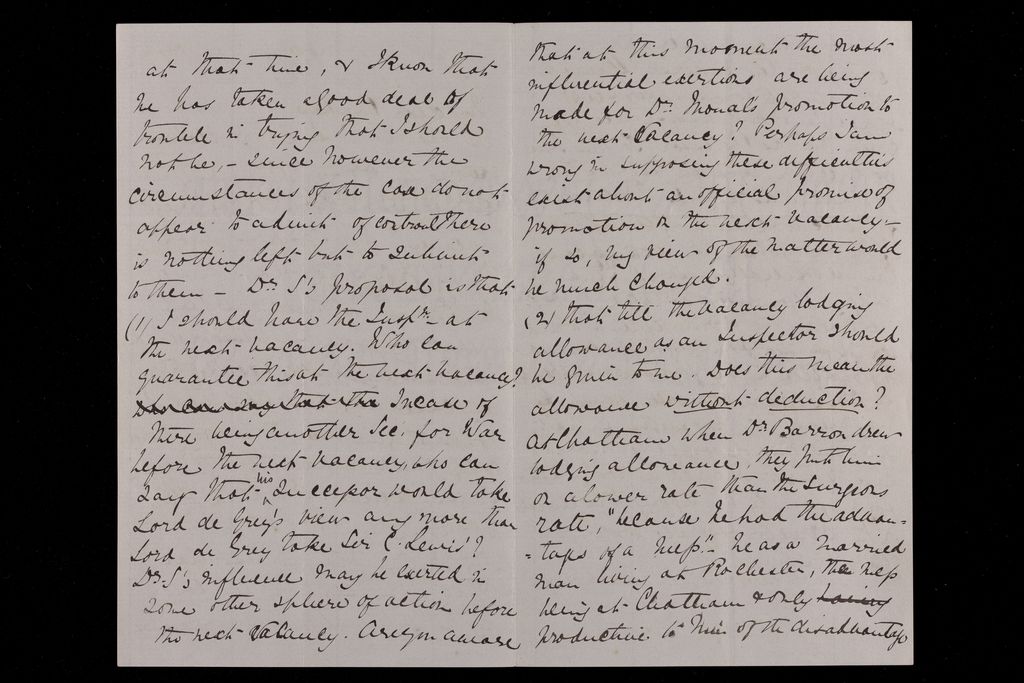 at that time, & I know that
he has taken a good deal of
trouble in trying that I should
not be, – since however the
circumstances of the case do not
appear to admit of control there
is nothing left but to submit
to them – Dr. S's proposal is that
(1) I should have the Inspr. at
the next vacancy. Who can
guarantee this at the next vacancy?
who can say that the In case of
there being another Sec. for War
before the next vacancy, who can
say that his Successor would take
Lord de Grey's view any more than
Lord de Grey take Sir C. Lewis'?
Dr. S's influence may be exerted in
some other sphere of action before
the next vacancy. Are you aware
that at this moment the most
influential exertions are being
made for Dr. Mouat's promotion to
the next vacancy? Perhaps I am
wrong in supposing these difficulties
exist about an official promise of
promotion on the next vacancy –
if so, my view of the matter would
be much changed.
(2) that till the vacancy lodging
allowance as an Inspector should
be given to me. Does this mean the
allowance without deduction?
At Chatham when Dr. Barron drew
lodging allowance, they put him
on a lower rate than the Surgeons
rate, "because he had the advan-
-tages of a mess" – he as a married
man living at Rochester, the mess
being at Chatham & only having
productive to him of the disadvantage